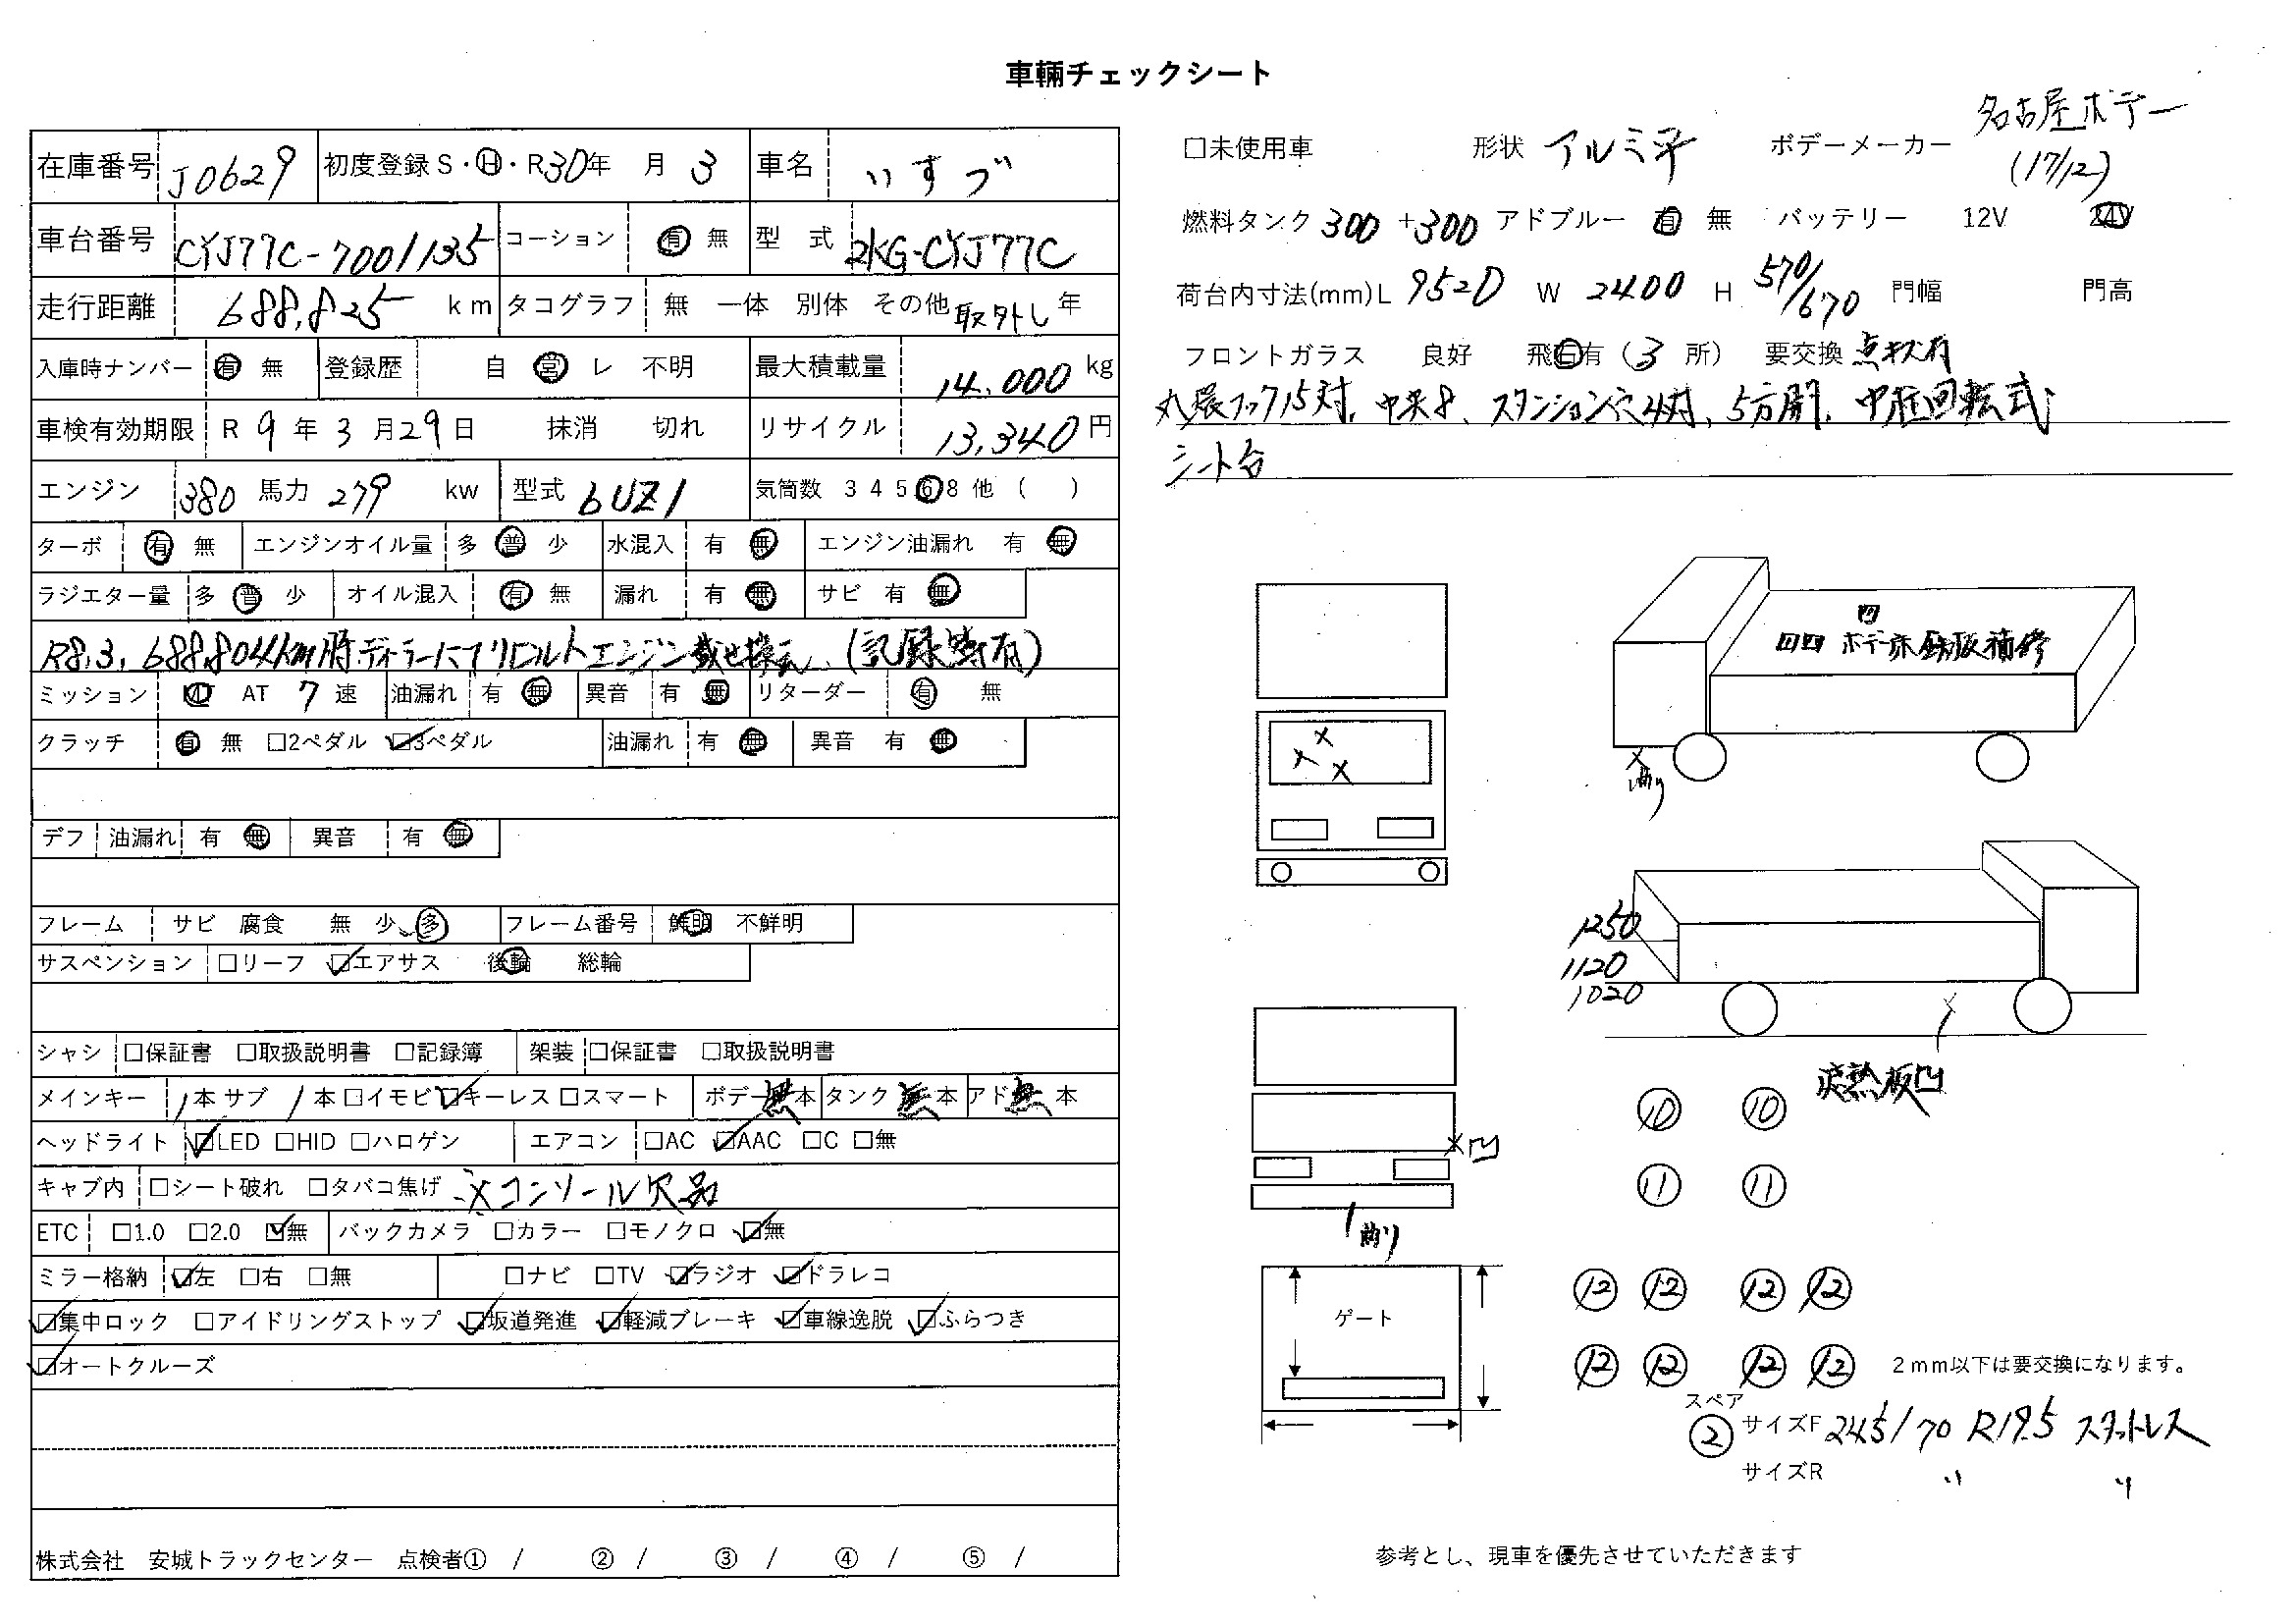 車輛チェックシート
在庫番号 J0629 初度登録 S・H・R30年 月 3 車名 いすづ
車台番号 CYJ77C-7001135 コーション 有 無 型 式 2KG-CYJ77C
走行距離 688,825 km タコグラフ 無 一体 別体 その他 取外し 年
入庫時ナンバー 有 無 登録歴 自 営 レ 不明 最大積載量 14,000 kg
車検有効期限 R 9 年 3 月 29 日 抹消 切れ リサイクル 13,340 円
エンジン 380 馬力 279 kw 型式 6UZ1 気筒数 3 4 5 6 8 他 ( )
ターボ 有 無 エンジンオイル量 多 普 少 水混入 有 無 エンジン油漏れ 有 無
ラジエター量 多 普 少 オイル混入 有 無 漏れ 有 無 サビ 有 無
R8,3, 688,804km時ディーラーにてリビルトエンジン載せ換え、(記録簿有)
ミッション MT AT 7 速 油漏れ 有 無 異音 有 無 リターダー 有 無
クラッチ 有 無 □2ペダル ☑3ペダル 油漏れ 有 無 異音 有 無
デフ 油漏れ 有 無 異音 有 無
フレーム サビ 腐食 無 少 多 フレーム番号 鮮明 不鮮明
サスペンション □リーフ ☑エアサス 後輪 総輪
シャシ □保証書 □取扱説明書 □記録簿 架装 □保証書 □取扱説明書
メインキー 1本 サブ 1本 □イモビ ☑キーレス □スマート ボデー 無 本 タンク 無 本 アド 無 本
ヘッドライト ☑LED □HID □ハロゲン エアコン □AC ☑AAC □C □無
キャブ内 □シート破れ □タバコ焦げ ※コンソール欠品
ETC □1.0 □2.0 ☑無 バックカメラ □カラー □モノクロ ☑無
ミラー格納 ☑左 □右 □無 □ナビ □TV ☑ラジオ ☑ドラレコ
☑集中ロック □アイドリングストップ ☑坂道発進 ☑軽減ブレーキ ☑車線逸脱 ☑ふらつき
☑オートクルーズ
株式会社 安城トラックセンター 点検者① / ② / ③ / ④ / ⑤ /
□未使用車 形状 アルミ平 ボデーメーカー 名古屋ボデー
(17/12)
燃料タンク 300 +300 アドブルー 有 無 バッテリー 12V 24V
荷台内寸法(mm)L 9520 W 2400 H 570/670 門幅 門高
フロントガラス 良好 飛石有 (3 所) 要交換 点キズ有
丸環フック15対、中央8、スタンション穴4対、5方開、中柱回転式
シート台
凹
凹凹 ボデー床鉄板補修
X
削り
X
X
X
1250
1120
1020
X
遮熱板凹
X凹
削り
ゲート
10 10
11 11
12 12 12 12
12 12 12 12
2mm以下は要交換になります。
スペア
2 サイズF 245/70 R19.5 スタットレス
サイズR 〃 〃
参考とし、現車を優先させていただきます